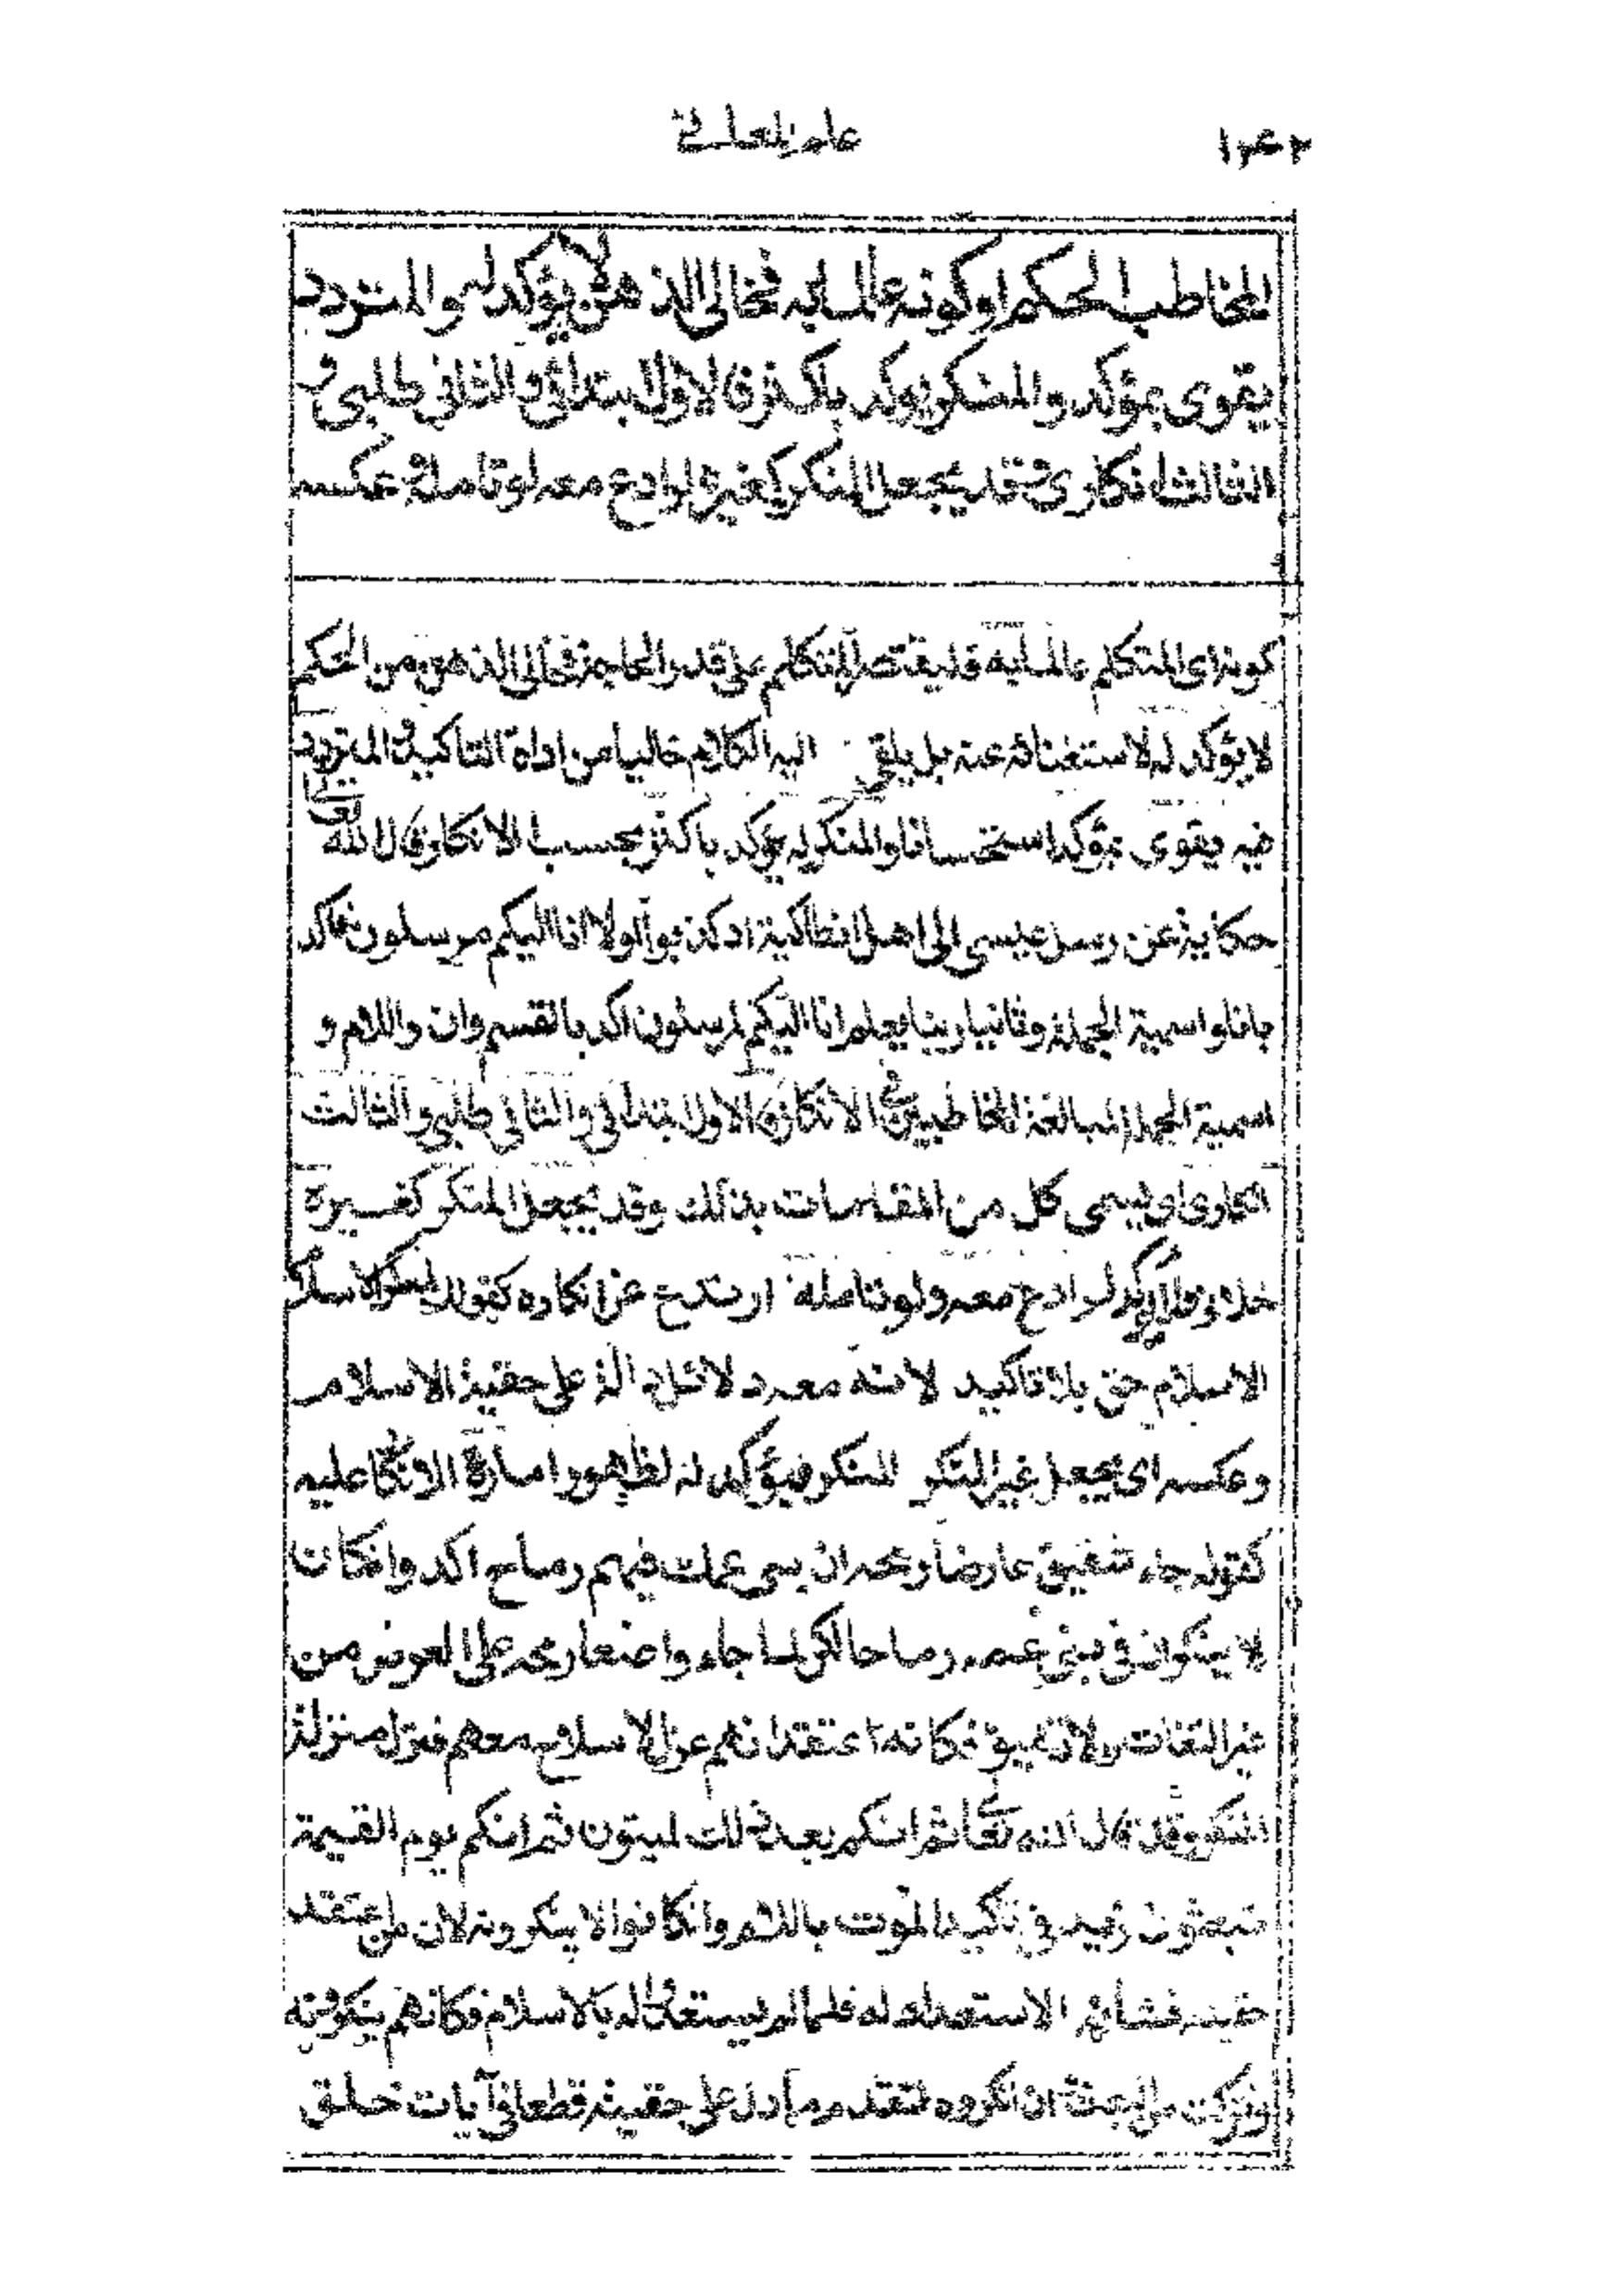 علم المعاني
المخاطب الحكم او كونه عالما به فخالي الذهن لا يؤكد له والمتردد
يقوى بمؤكد والمنكر يؤكد باكثر فالاول ابتدائي والثاني طلبي و
الثالث انكاري وقد يجعل المنكر كغيره لرادع معه لو تامله وعكسه
كونه اى المتكلم عالما به فليقتصر المتكلم على قدر الحاجة فخالي الذهن من الحكم
لا يؤكد له لاستغنائه عنه بل يلقى اليه الكلام خاليا من اداة التاكيد والمتردد
فيه يقوى بمؤكد استحسانا والمنكر له يؤكد باكثر بحسب الانكار قال الله تعالى
حكاية عن رسل عيسى الى اهل انطاكية اذ كذبوا اولا انا اليكم مرسلون فاكد
بان واسمية الجملة وثانيا ربنا يعلم انا اليكم لمرسلون اكد بالقسم وان واللام و
اسمية الجملة لمبالغة المخاطبين في الانكار فالاول ابتدائي والثاني طلبي والثالث
انكاري اى يسمى كل من المقامات بذلك وقد يجعل المنكر كغيره
فلا يؤكد لرادع معه ولو تامله ارتدع عن انكاره كقولك لمنكر الاسلام
الاسلام حق بلا تاكيد لانه معه دلائل دالة على حقية الاسلام
وعكسه اى يجعل غير المنكر كالمنكر فيؤكد له لظهور امارة الانكار عليه
كقوله جاء شقيق عارضا رمحه ان بني عمك فيهم رماح اكد وان كان
لا ينكر ان في بني عمه رماحا لكن لما جاء واضعا رمحه على العرض من
غير التفات ولا تهيؤ فكانه اعتقد انهم عزل لا سلاح معهم فنزل منزلة
المنكر وقد قال الله تعالى ثم انكم بعد ذلك لميتون ثم انكم يوم القيمة
تبعثون زيد في تاكيد الموت باللام وان كانوا لا ينكرونه لان من اعتقد
حقيته فشانه الاستعداد له فلما لم يستعدوا له بالاسلام فكانهم ينكرونه
وتركت من البعث ان انكروه لتقدم ما دل على حقيته قطعا في آيات خلق